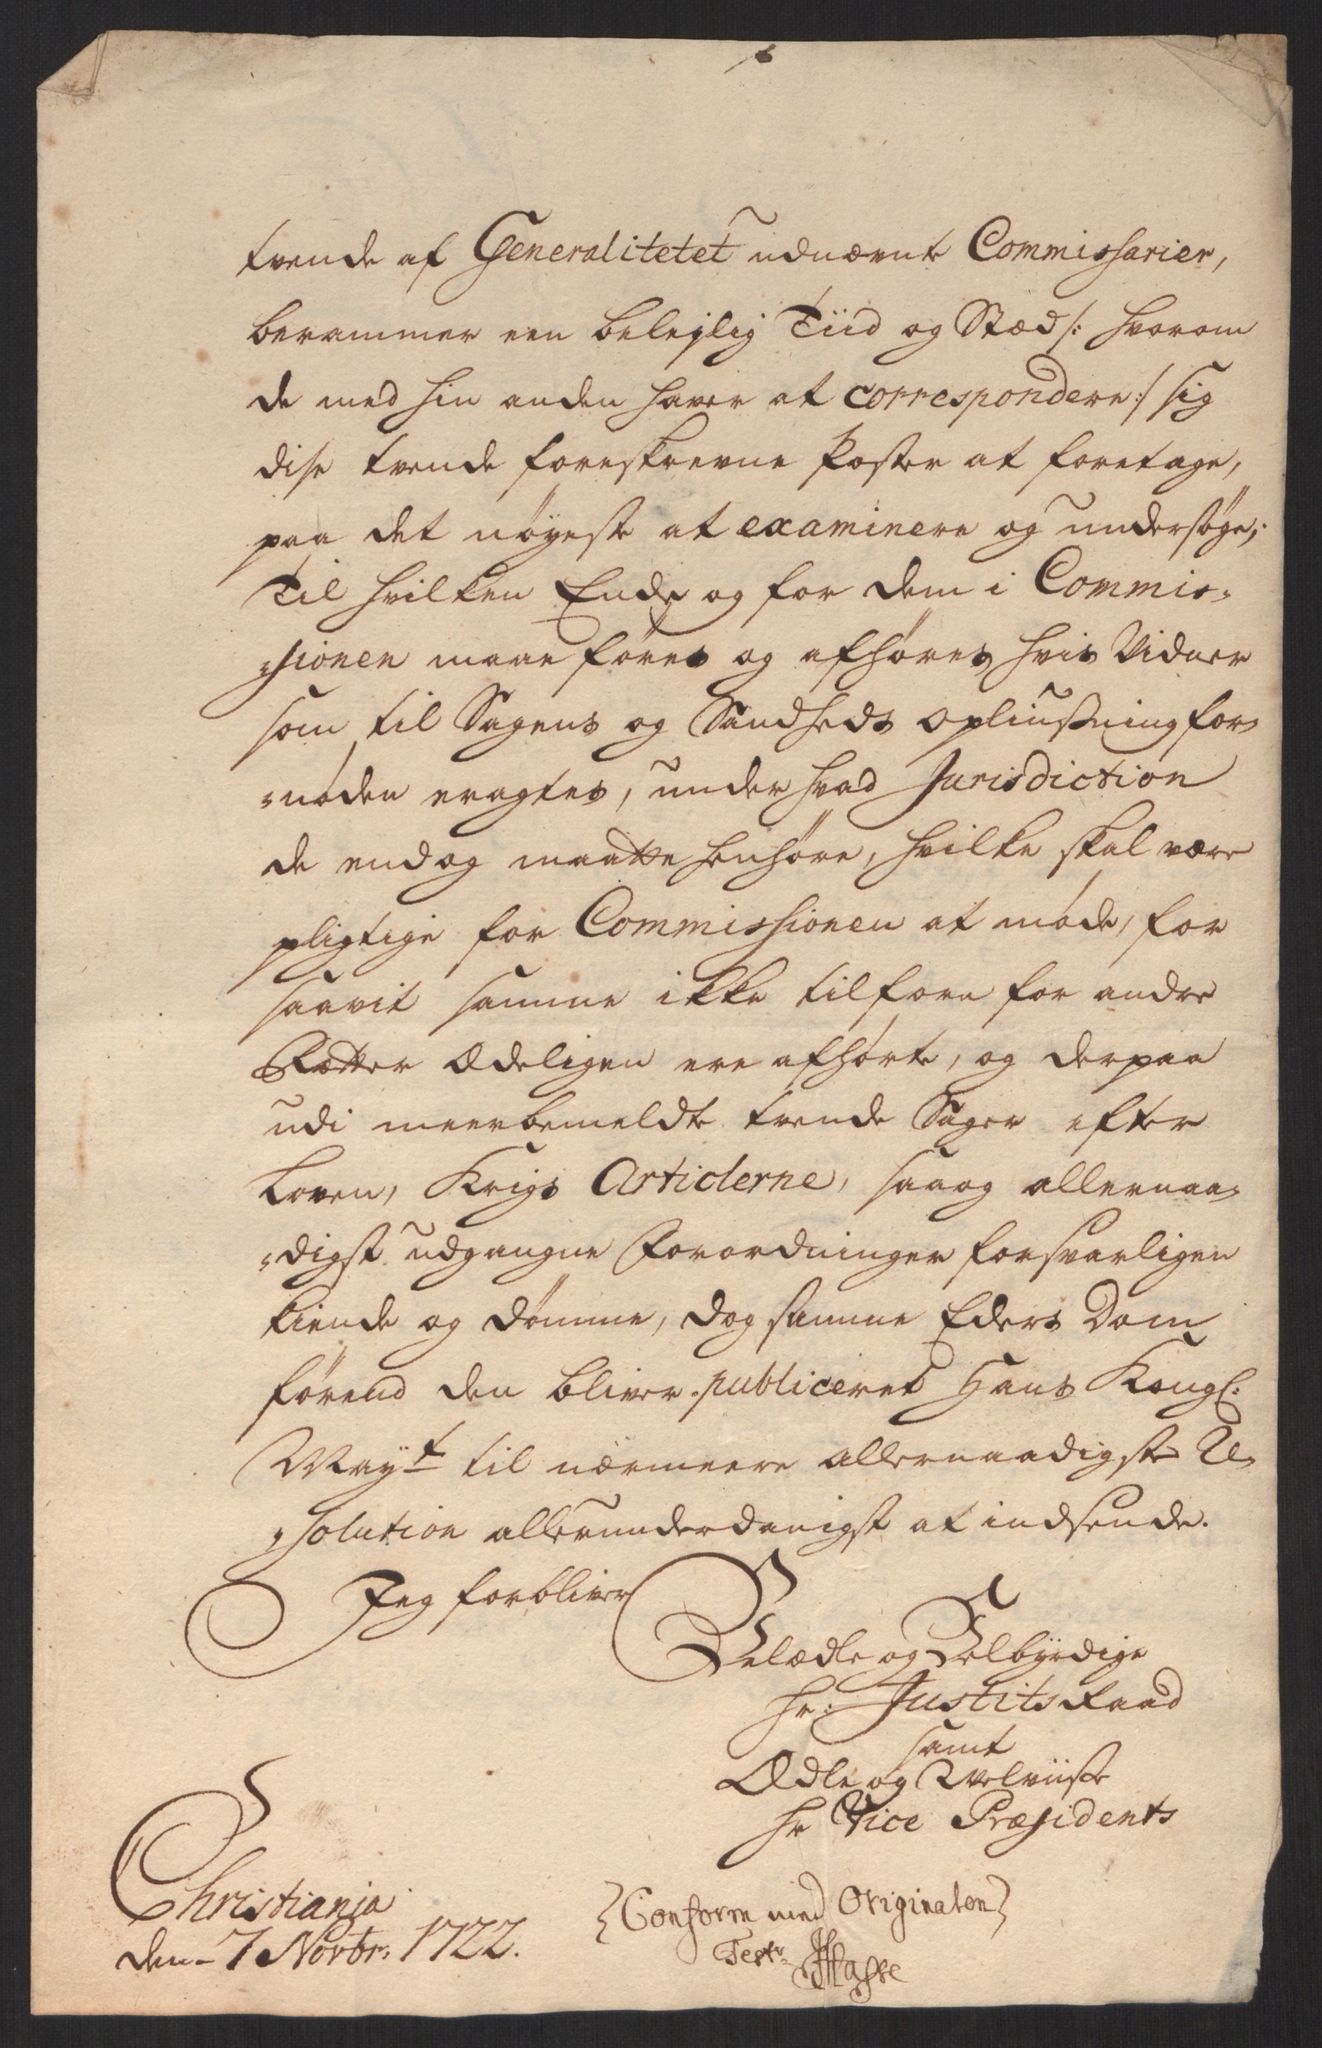 tvende af Generalitetet udnævnte Commissarier,
berammer een belejlig Tiid og Stæd /: hvorom
de med hin anden haver at correspondere :/ sig
dise tvende foreskrevne Poster at foretage,
paa det nøyeste at examinere og undersøge;
Til hvilken Ende og for dem i Commis-
sionen maae føres og afhøres hvis Vidner
som til Sagens og Sandheds Opliusning for-
nøden eragtes, under hvad Jurisdiction
de endog maatte henhøre, hvilke skal være
pligtige for Commissionen at møde, for
saavit samme ikke tilforn for andre
Rætter Ædeligen ere afhørte, og derpaa
udi meerbemeldte tvende Sager efter
Loven, Krigs Articlerne, saaog allernaa-
digst udgangne Forordninger forsvarligen
kiende og dømme, dog samme Eders Dom
førend den bliver publiceret Hans Kongl:
Mayt til nærmeere allernaadigste Re-
solution allerunderdanigst at indsende.
Jeg forbliver
Velædle og Velbyrdige
Hr: Justits Raad
samt
Ædle og Welviiste
Hr Vice Præsidents
Christiania
den 7 Novbr: 1722.
Conform med Originalen
Test:
Hasse